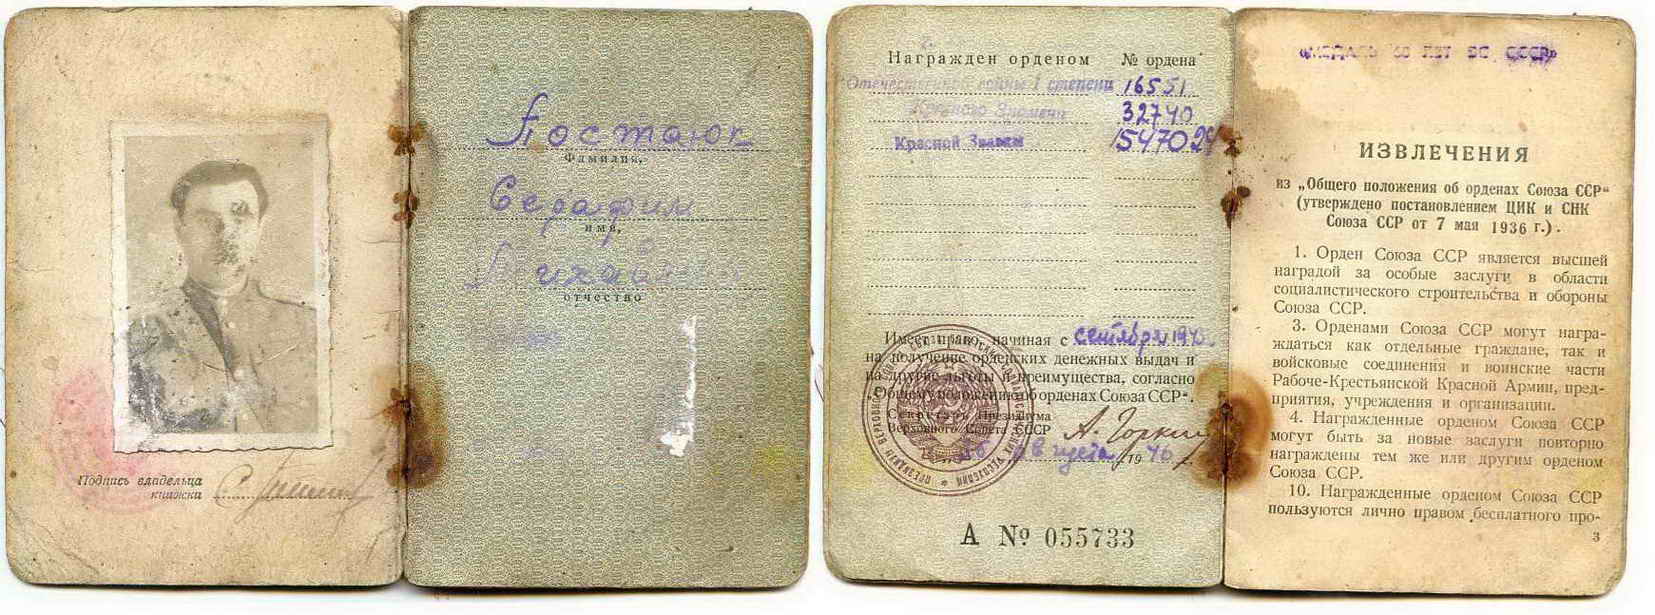 Подпись владельца
книжки
Постаюк
Фамилия,
Серафим
имя,
отчество
Награжден орденом № ордена
Отечественной войны I степени 16551
Красного Знамени 32740
Красной Звезды 1547024
Имеет право, начиная с сентября 194
на получение орденских денежных выдач и
на другие льготы и преимущества, согласно
„Общему положению об орденах Союза ССР“.
Секретарь Президиума
Верховного Совета СССР А. Горкин
августа 1946
А № 055733
«МЕДАЛЬ ЛЕТ ВС СССР»
ИЗВЛЕЧЕНИЯ
из „Общего положения об орденах Союза ССР“
(утверждено постановлением ЦИК и СНК
Союза ССР от 7 мая 1936 г.).
1. Орден Союза ССР является высшей
наградой за особые заслуги в области
социалистического строительства и обороны
Союза ССР.
3. Орденами Союза ССР могут награ-
ждаться как отдельные граждане, так и
войсковые соединения и воинские части
Рабоче-Крестьянской Красной Армии, пред-
приятия, учреждения и организации.
4. Награжденные орденом Союза ССР
могут быть за новые заслуги повторно
награждены тем же или другим орденом
Союза ССР.
10. Награжденные орденом Союза ССР
пользуются лично правом бесплатного про-
3